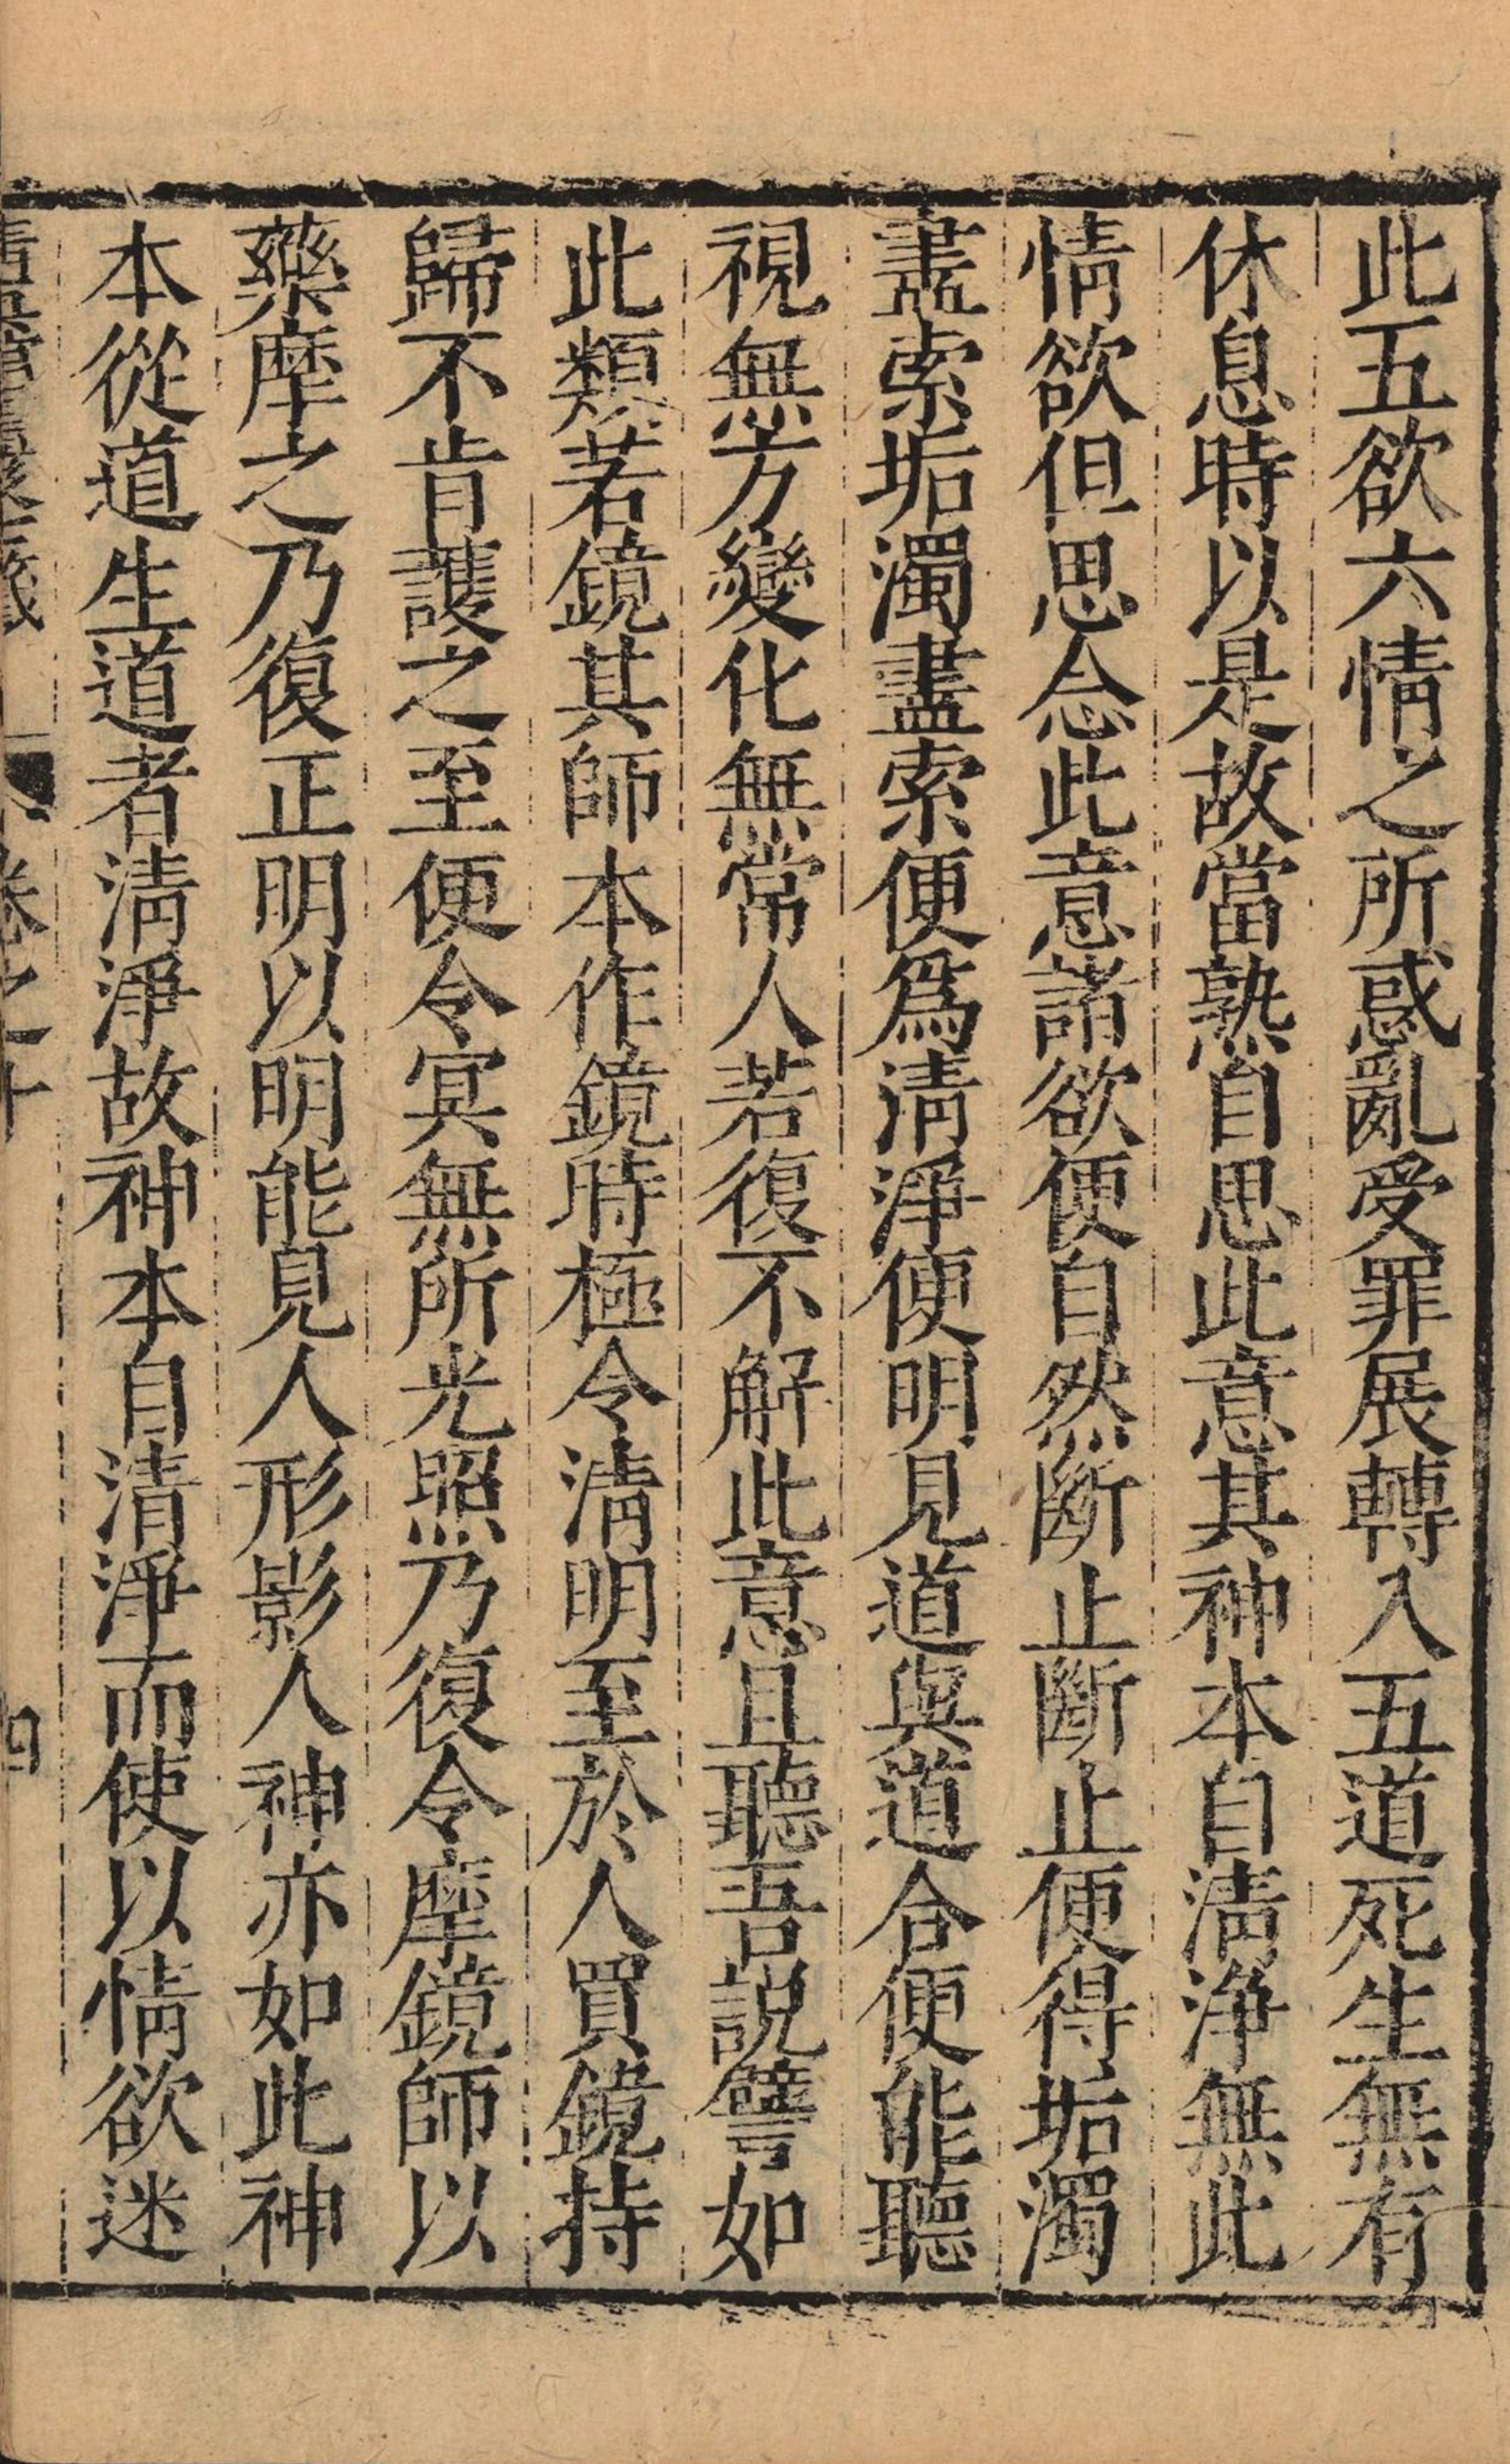 此五欲六情之所惑亂受罪展轉入五道死生無有
休息時以是故當熟自思此意其神本自淸淨無此
情欲但思念此意諸欲便自然斷止斷止便得垢濁
盡索垢濁盡索便爲淸淨便明見道與道合便能聽
視無方變化無常人若復不解此意且聽吾説譬如
此類若鏡其師本作鏡時極令淸明至於人買鏡持
歸不肯護之至便令冥無所光照乃復令摩鏡師以
藥摩之乃復正明以明能見人形影人神亦如此神
本從道生道者淸淨故神本自清淨而使以情欲迷
卷之十
四